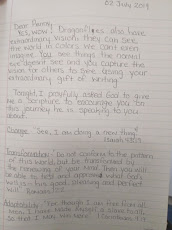 02 July 2019
Dear Penny,
Yes, wow! Dragonflies also have
extraordinary vision. They can see
the world in colors we can't even
imagine. You see things the normal
eye doesn't see and you capture the
vision for others to see using your
extraordinary gift of writing.
Tonight I prayerfully asked God to give
me a Scripture to encourage you for
this journey he is speaking to you
about.
Change: "See, I am doing a new thing!"
Isaiah 43:19
Transformation: "Do not conform to the pattern
of this world, but be transformed by
the renewing of your mind. Then you will
be able to test and approve what God's
will is - his good, pleasing and perfect
will." Romans 12:2
Adaptation: "For though I am free from all
men, I have made myself a slave to all,
so that I may win more." 1 Corinthians 9:19